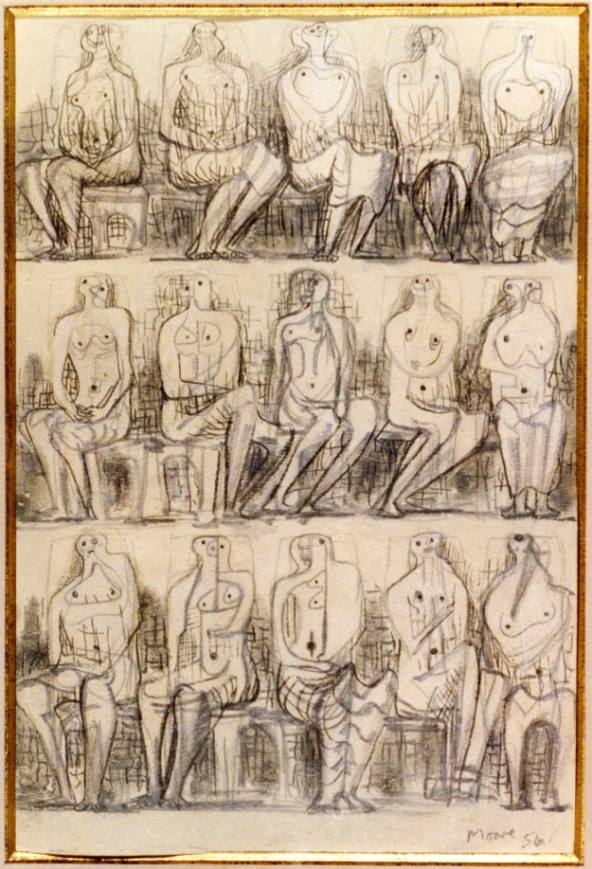 Moore 56.